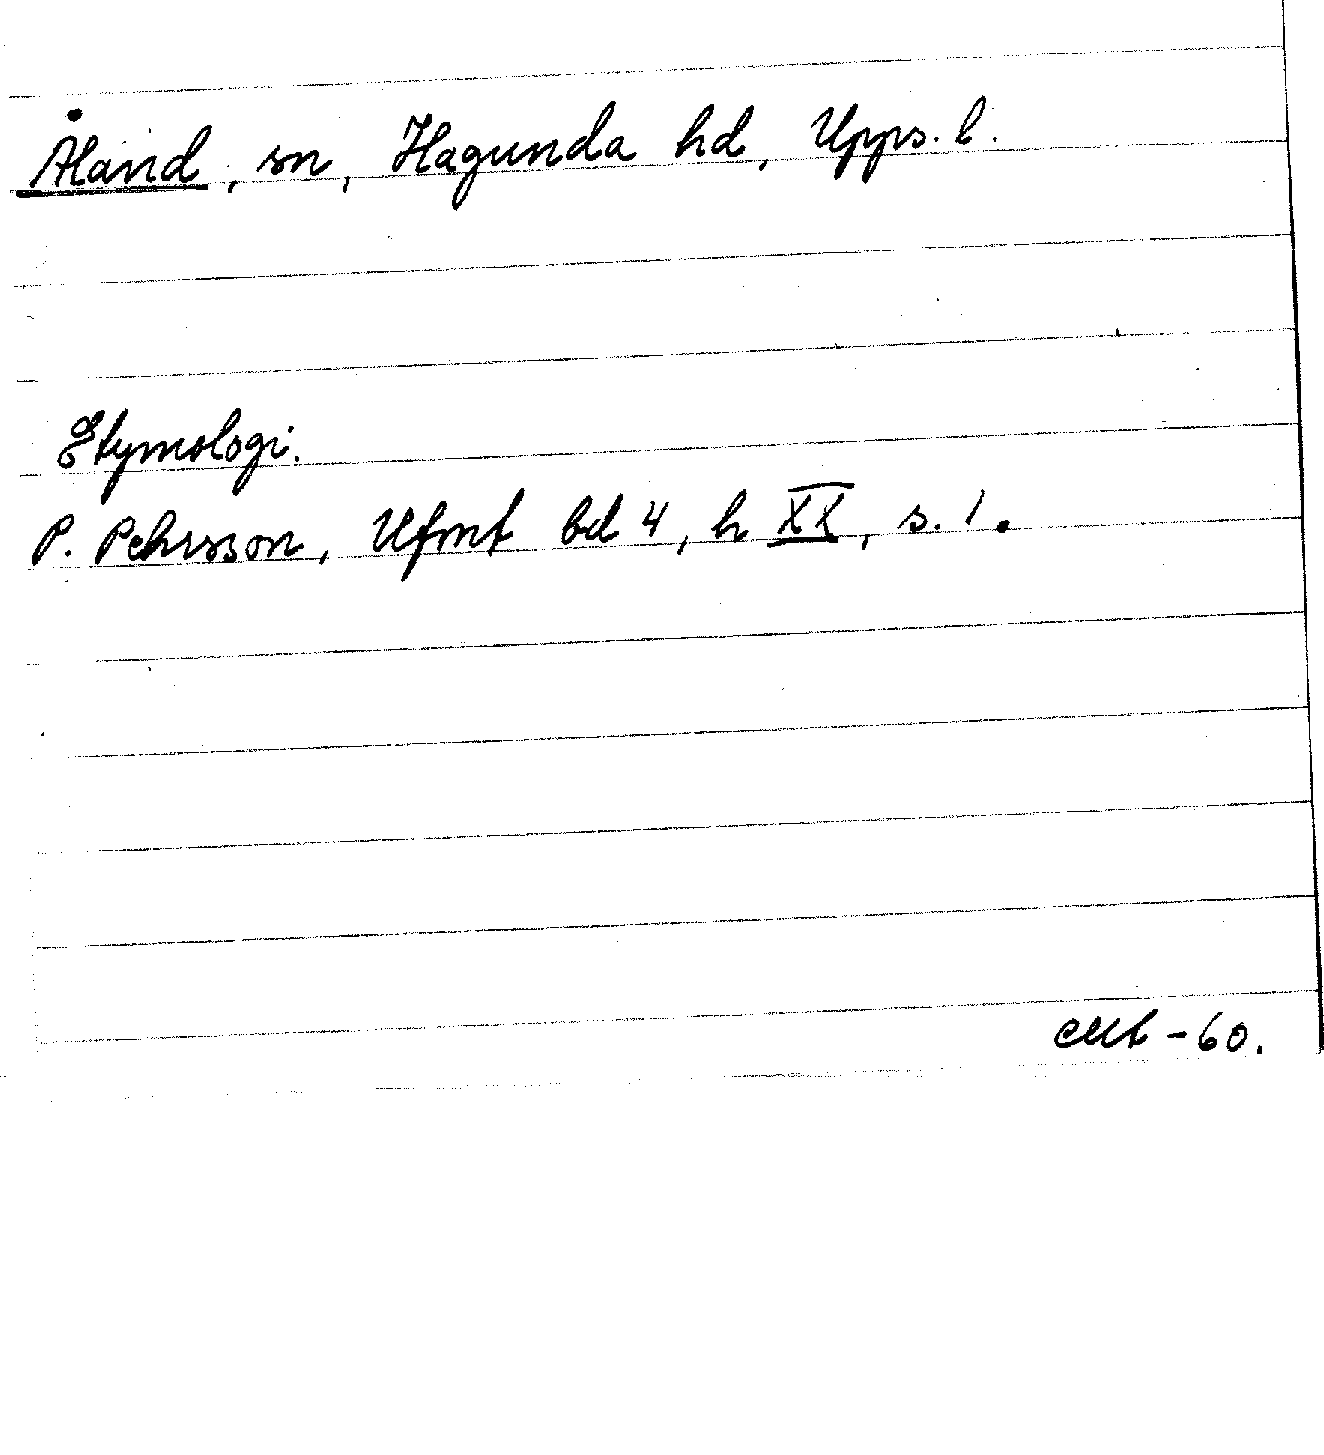 Åland, sn, Hagunda hd, Upps. l.
Etymologi.
P. Pehrsson, Ufmt bd 4, h XX, s. 1.
-60.